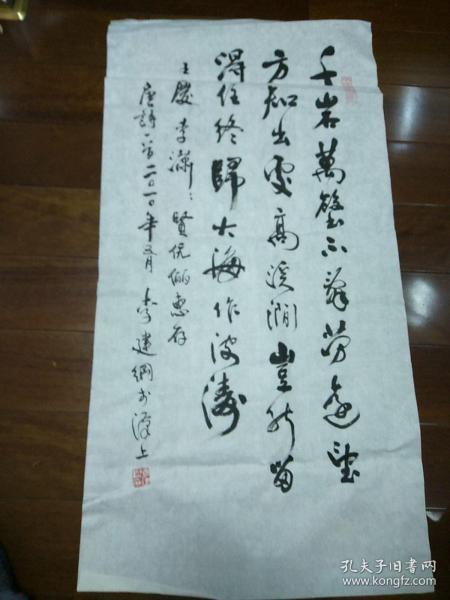 千岩萬壑不辞劳遠望
方知出處高溪澗豈能留
得住终歸大海作波涛
王慶李瀟瀟賢伉俪惠存
唐詩一首二〇一〇年五月李建綱书漢上
孔夫子旧书网
www.kongfz.com